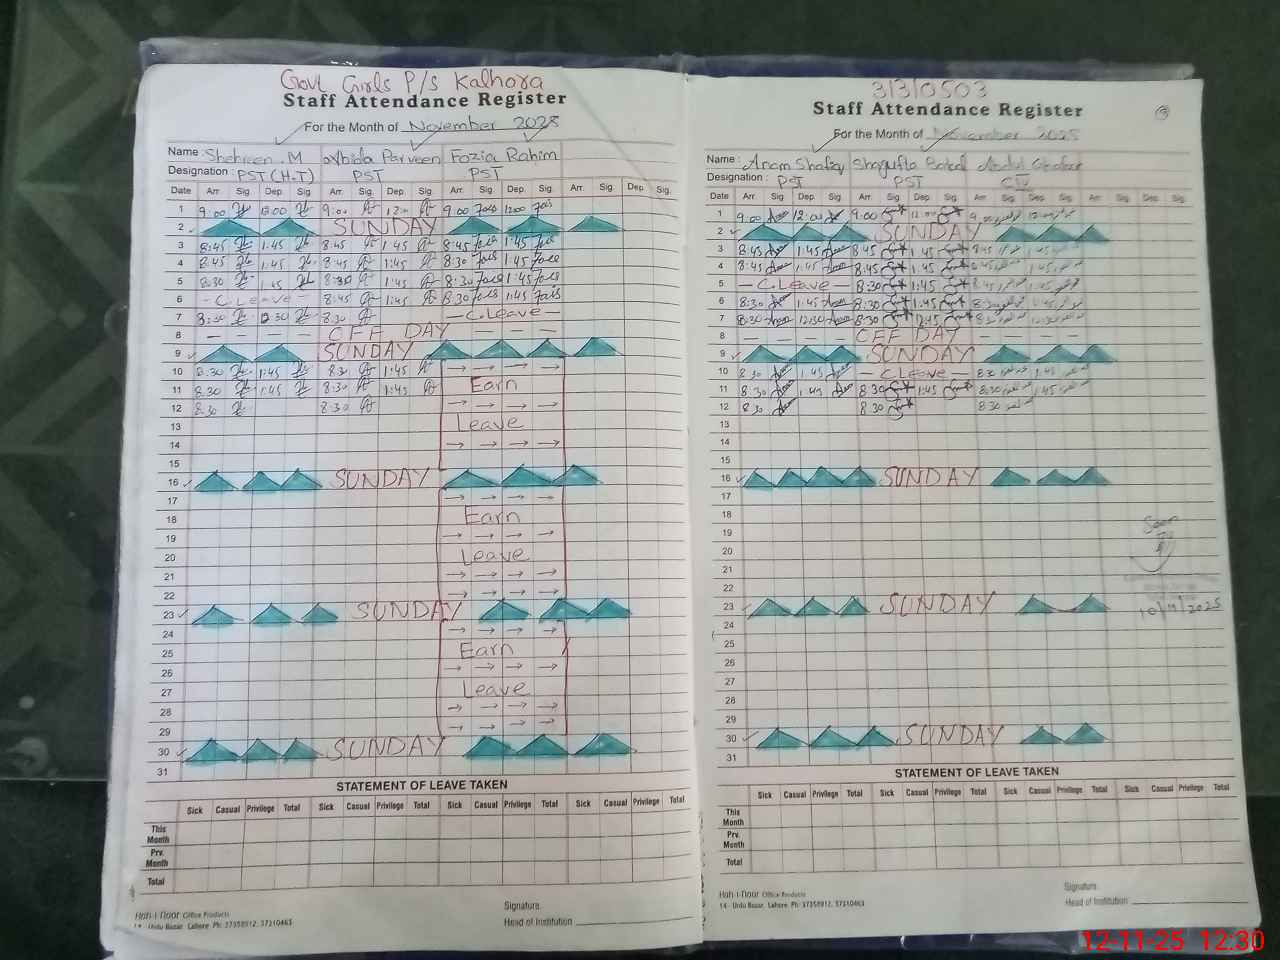 Govt Girls P/S Kalhora
Staff Attendance Register
For the Month of November 2025
Name: Shehreen .M Abida Parveen Fozia Rahim
Designation: PST (H.T) PST PST
Date Arr. Sig. Dep. Sig. Arr. Sig. Dep. Sig. Arr. Sig. Dep. Sig. Arr. Sig. Dep. Sig.
1 9:00 12:00 9:00 12:00 9:00 12:00
2 SUNDAY
3 8:45 1:45 8:45 1:45 8:45 1:45
4 8:45 1:45 8:45 1:45 8:30 1:45
5 8:30 1:45 8:30 1:45 8:30 1:45
6 - C. Leave - 8:45 1:45 8:30 1:45
7 8:30 12:30 8:30 - C. Leave -
8 OFF DAY
9 SUNDAY
10 8:30 1:45 8:30 1:45
11 8:30 1:45 8:30 1:45 Earn
12 8:30 8:30
13 Leave
14
15
16 SUNDAY
17
18 Earn
19
20 Leave
21
22
23 SUNDAY
24
25 Earn
26
27 Leave
28
29
30 SUNDAY
31
STATEMENT OF LEAVE TAKEN
Sick Casual Privilege Total Sick Casual Privilege Total Sick Casual Privilege Total Sick Casual Privilege Total
This Month
Prv. Month
Total
Signature.
Head of Institution
Hoh-i-Noor Office Products
14 - Urdu Bazar, Lahore. Ph: 37358912, 37310463
31310503
Staff Attendance Register
For the Month of November 2025
Name: Anam Shafiq Shagufta
Designation: PST PST
Date Arr. Sig. Dep. Sig. Arr. Sig. Dep. Sig. Arr. Sig. Dep. Sig. Arr. Sig. Dep. Sig.
1 9:00 12:00 9:00 12:00 9:00 12:00
2 SUNDAY
3 8:45 1:45 8:45 1:45 8:45 1:45
4 8:45 1:45 8:45 1:45 8:45 1:45
5 - C. Leave - 8:30 1:45 8:45 1:45
6 8:30 1:45 8:30 1:45 8:30 1:45
7 8:30 12:30 8:30 12:30
8 OFF DAY
9 SUNDAY
10 8:30 1:45 - C. Leave - 8:30 1:45
11 8:30 1:45 8:30 1:45 8:30 1:45
12 8:30 8:30 8:30
13
14
15
16 SUNDAY
17
18
19 Seen
20
21
22
23 SUNDAY 10/11/2025
24
25
26
27
28
29
30 SUNDAY
31
STATEMENT OF LEAVE TAKEN
Sick Casual Privilege Total Sick Casual Privilege Total Sick Casual Privilege Total Sick Casual Privilege Total
This Month
Prv. Month
Total
Signature.
Head of Institution
Hoh-i-Noor Office Products
14 - Urdu Bazar, Lahore. Ph: 37358912, 37310463
12-11-25 12:30